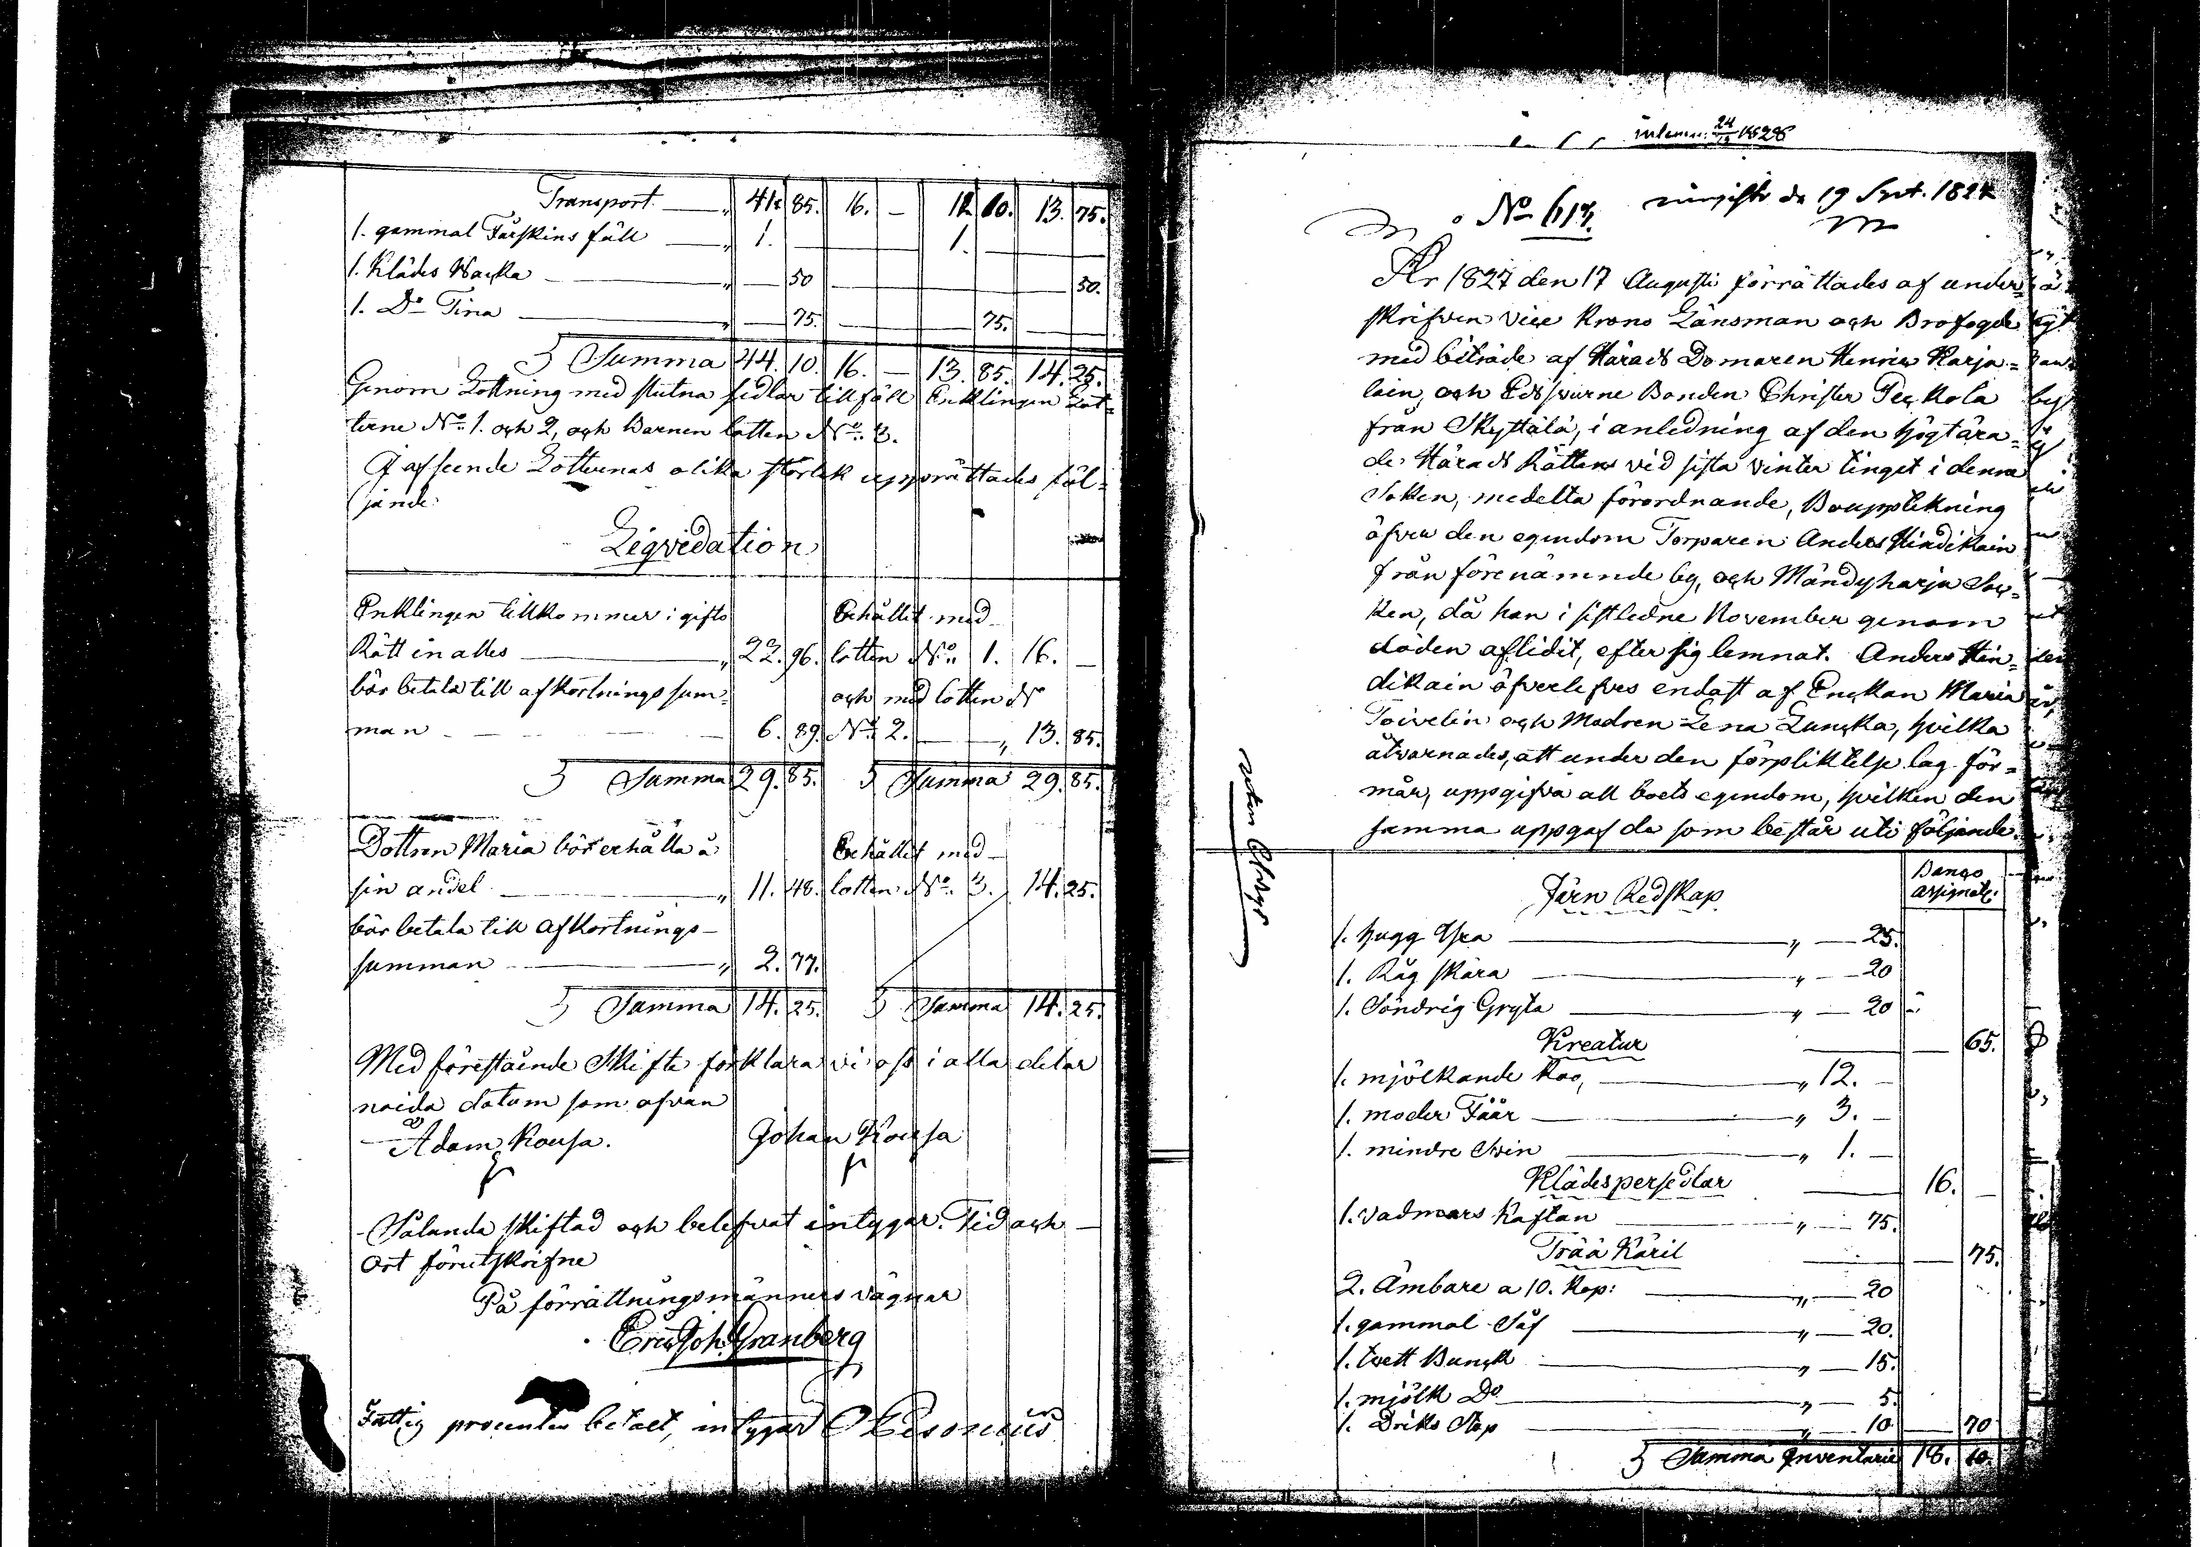 Transport — „ 41. 85. 16. — 12. 10. 13. 75.
1. gammal Fårskins fäll — „ 1. — 1. —
1. Klädes Wacka — „ 50 — 50.
1. Do Tina — „ 75. — 75. —
Summa 44. 10. 16. — 13. 85. 14. 25.
Genom Lottning med slutna sedlar tillföll Enklingen Lot-
terne No. 1. och 2, och Barnen lotten No. 3.
I afseende Lotternas olika storlek upprättades föl-
jande:
Liqvidation
Enklingen tillkommer i gifto
Rätt in alles — „ 22. 96.
bör betala till afkortnings sum-
man — 6. 89.
Summa 29. 85.
Erhållit med
lotten No. 1. 16. —
och med lotten
No. 2. — „ 13. 85.
Summa 29. 85.
Dottren Maria bör erhålla å
sin andel — „ 11. 48.
bör betala till afkortnings-
summan — „ 2. 77.
Summa 14. 25.
Erhållit med
lotten No. 3. 14. 25.
Summa 14. 25.
Med förestående Skifte förklara vi oss i alla delar
nöida datum som ofvan
Adam Kousa. Johan Kousa
Sålunda skiftad och belefvat intygar. Tid och
Ort förutskrifne
På förrättningsmänners vägnar
Eric Joh. Granberg
Fattig procenten betalt, intygar
inlemn. 24/12 1828
No 613. ingifte d. 19 Sept. 1827
År 1827 den 17 Augusti förrättades af under-
skrifven vice Krono Länsman och Brofogde
med biträde af Härads Domaren Henric Karja-
lain, och Edsvurne Bonden Christer Peckola
från Skyttälä, i anledning af den högtära-
de Härads Rättens vid sista vinter tinget i denna
Soken, medelta förordnande, Bouppteckning
öfver den egendom Torparen Anders Hindikain
från förenämnde by, och Mändyharju Soc-
ken, då han i sistledne November genom
döden aflidit, efter sig lemnat. Anders Hin-
dikain öfverlefves endast af Enckan Maria
Toivelin och Modren Lena Luncka, hvilka
åtvarnades, att under den förpliktelse lag för-
mår, uppgifva all boets egendom, hvilken den
samma uppgaf de som består uti följande.
Järn Redskap Banco assignat:
1. hugg Yxa — „ — 25.
1. Råg skära — „ — 20
1. Söndrig Gryta — „ — 20
Kreatur — 65.
1. mjölkande Koo, — „ 12. —
1. moder Fåår — „ 3. —
1. mindre Svin — „ 1. —
Klädespersedlar — 16. —
1. vadmars Kaftan — „ — 75.
Trää Käril — 75.
2. Ämbare a 10. Kop: — „ — 20
1. gammal Så — „ — 20.
1. tvett Bunck — „ — 15.
1. mjölk Do — „ — 5.
1. Driks Stop — „ — 10 — 70
Summa Inventarie 18. 10.